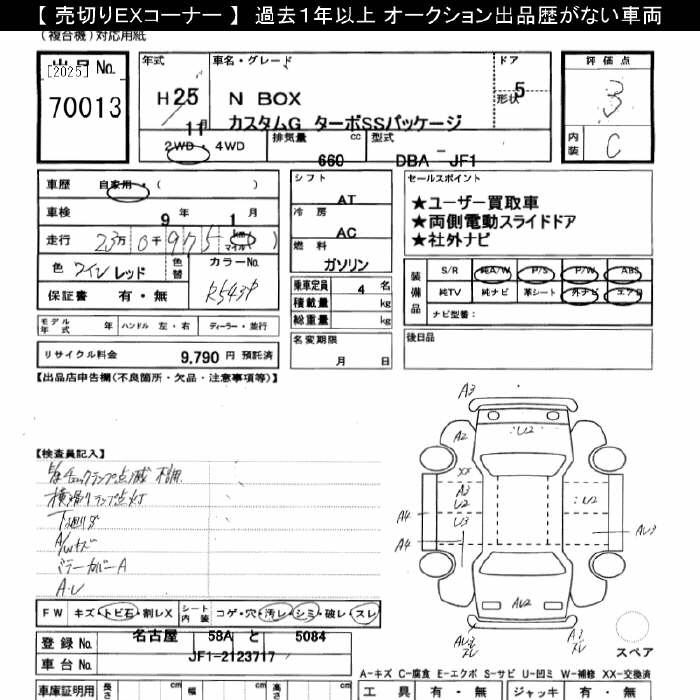 【 売切りEXコーナー 】 過去1年以上 オークション出品歴がない車両
(複合機)対応用紙
出品 No. [2025]
70013
年式 H 25 11月
車名・グレード N BOX
カスタムG ターボSSパッケージ
ドア 5
形状
2WD・4WD
排気量 660 cc
型式 DBA - JF1
評価点 3
内装 C
車歴 自家用・( )
車検 9 年 1 月
走行 23万 0千 975 km マイル ( )
色 ワイン レッド
色替
カラーNo. R543P
保証書 有・無
モデル年式 年 ハンドル 左・右 ディーラー・並行
リサイクル料金 9,790 円 預託済
シフト AT
冷房 AC
燃料 ガソリン
乗車定員 4 名
積載量 kg
総重量 kg
名変期限 月 日
セールスポイント
★ユーザー買取車
★両側電動スライドドア
★社外ナビ
装備品
S/R 純A/W P/S P/W ABS
純TV 純ナビ 革シート 外ナビ エアB
ナビ型番:
後日品
【出品店申告欄(不良箇所・欠品・注意事項等)】
【検査員記入】
横滑りランプ点灯
下廻りサビ
A/Wキズ
ミラーカバーA
A・U
FW キズ・トビ石・割レX シート内装 コゲ・穴・汚レ・シミ・破レ・スレ
登録 No. 名古屋 58A と 5084
車台 No. JF1-2123717
車庫証明用 長さ cm 幅 cm 高さ cm
A3
A2
U2
XX
A3
U2
U3
U2
A4
A4
AU3
AU2
AU3
スレ
A3
スレ
スペア
A-キズ C-腐食 E-エクボ S-サビ U-凹ミ W-補修 XX-交換済
工具 有・無 ジャッキ 有・無